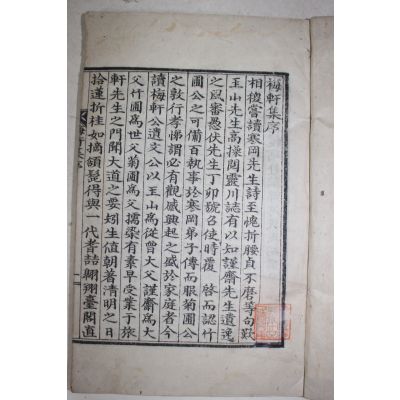 梅軒集序
相稷嘗讀寒岡先生詩至愧折腰貞不磨等句歎
玉山先生高操閱靈川誌有以知謹齋先生遺逸
之風審愚伏先生丁卯號召使時覆 啓而認竹
圃公之可備百執事於寒岡弟子傳而服菊圃公
之敦行孝悌謂必有觀感興起之盛於家庭者今
讀梅軒公遺文公以玉山爲從曾大父謹齋爲大
父竹圃爲世父菊圃爲父擩染有素早受業于旅
軒先生之門聞大道之要妙生値朝著淸明之日
拾蓮折桂如摘頷髭得與一代耆喆翶翔臺閣直
梅軒集序
一